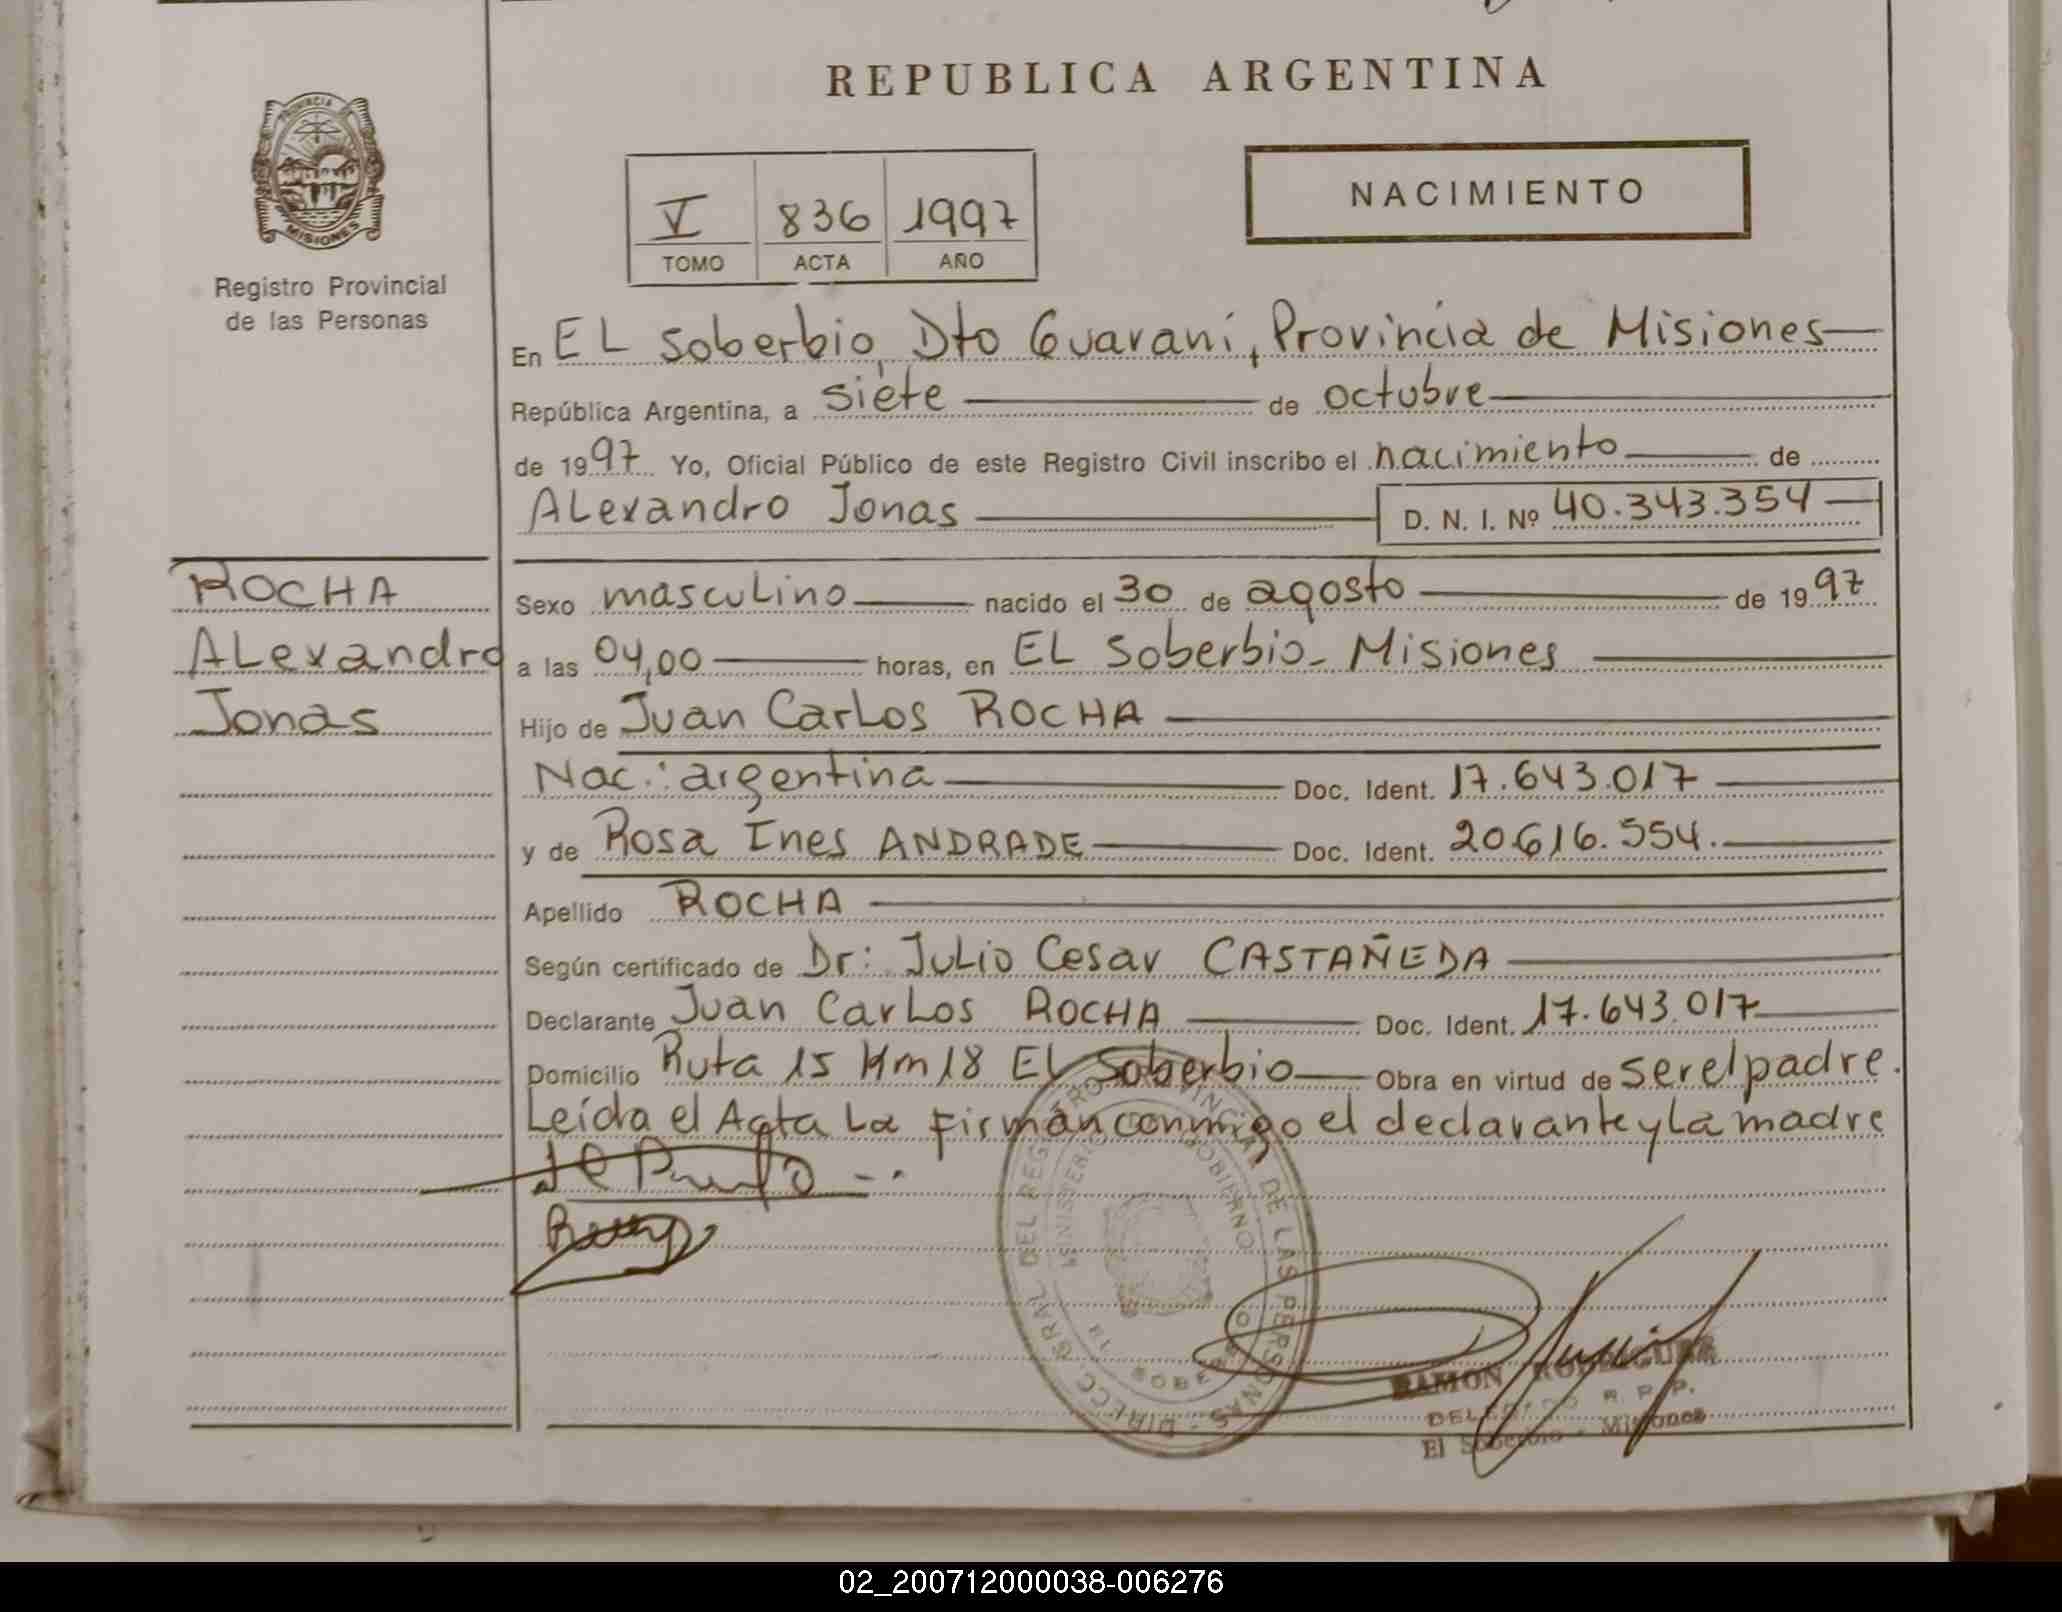 REPUBLICA ARGENTINA
PROVINCIA
MISIONES
Registro Provincial
de las Personas
V 836 1997
TOMO ACTA AÑO
NACIMIENTO
En EL Soberbio, Dto Guaraní, Provincia de Misiones
República Argentina, a siete de octubre
de 1997 Yo, Oficial Público de este Registro Civil inscribo el nacimiento de
ALexandro Jonas D. N. I. Nº 40.343.354
ROCHA
ALexandro
Jonas
Sexo mascuLino nacido el 30 de agosto de 1997
a las 04,00 horas, en EL Soberbio - Misiones
Hijo de Juan CarLos ROCHA
Nac.: argentina Doc. Ident. 17.643.017
y de Rosa Ines ANDRADE Doc. Ident. 20.616.554.
Apellido ROCHA
Según certificado de Dr: JuLio Cesar CASTAÑEDA
Declarante Juan CarLos ROCHA Doc. Ident. 17.643.017
Domicilio Ruta 15 Km 18 EL Soberbio Obra en virtud de ser el padre.
Leída el Acta La firman conmigo el declarante y La madre
DIRECC. GRAL. DEL REGISTRO PROVINCIAL DE LAS PERSONAS
MINISTERIO GOBIERNO
RAMON RODRIGUEZ
DELEGADO R. P. P.
El Soberbio - Misiones
02_200712000038-006276